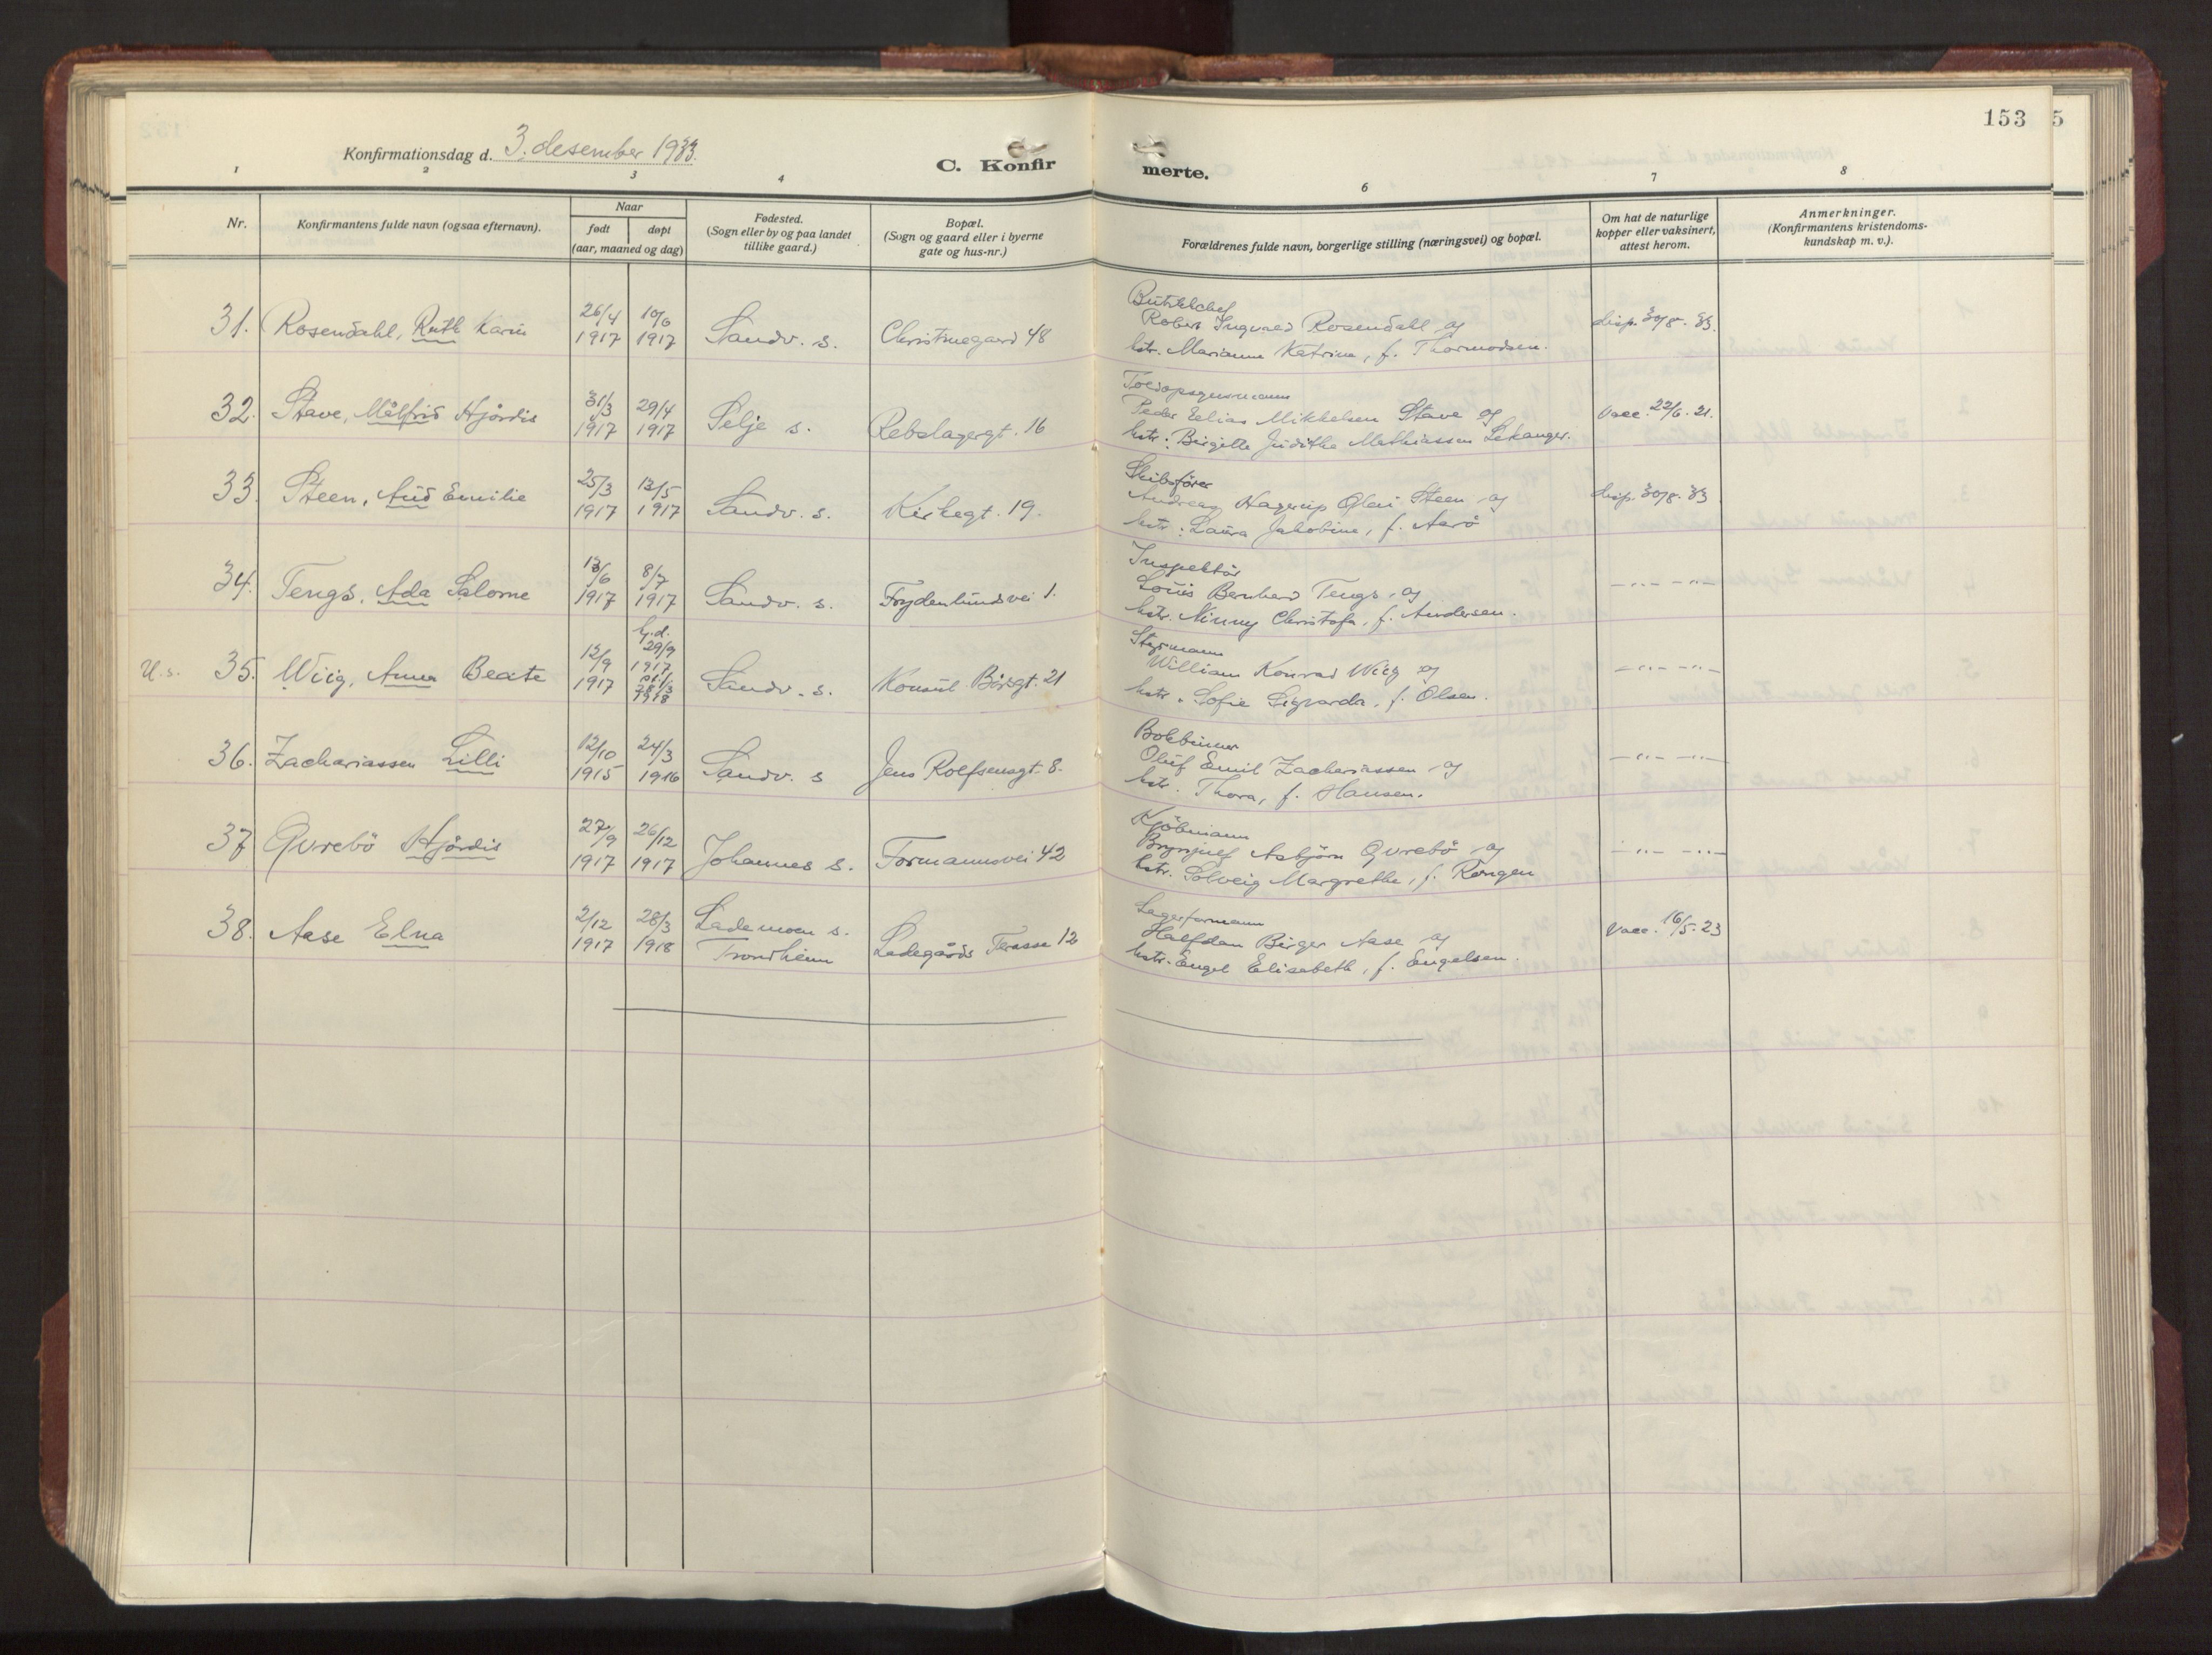 153 5
Konfirmationsdag d. 3. desember 1933.
C. Konfir merte.
1 2 3 4 6 7 8
Nr.
Konfirmantens fulde navn (ogsaa efternavn).
Naar
født døpt
(aar, maaned og dag)
Fødested.
(Sogn eller by og paa landet
tillike gaard.)
Bopæl.
(Sogn og gaard eller i byerne
gate og hus-nr.)
Forældrenes fulde navn, borgerlige stilling (næringsvei) og bopæl.
Om hat de naturlige
kopper eller vaksinert,
attest herom.
Anmerkninger.
(Konfirmantens kristendoms-
kundskap m. v.).
31. Rosendahl, Ruth Karin
26/4 10/6
1917 1917
Sandv. s.
Christinegaard 48
Robert Ingvald Rosendall og
hstr. Marianne Katrine, f. Thormodsen.
disp. 30/8. 33.
32. Stave, Målfrid Hjördis
31/3 29/4
1917 1917
Selje s.
Rebslagergt. 16
Toldopsynsmann
Peder Eelias Mikkelsen Stave og
hstr: Birgitte Juditha Mathiassen Lekanger.
Vacc. 22/6. 21.
33. Steen, Aud Emilie
25/3 13/5
1917 1917
Sandv. s.
Kirkegt. 19.
Skibsförer
Andreas Hagerup Olai Steen og
hstr: Laura Jakobine, f. Aarö
disp. 30/8. 33
34. Tengs, Ada Salome
13/6 8/7
1917 1917
Sandv. s.
Frydenlundsvei 1.
Inspektör
Louis Bernhard Tengs, og
hstr. Minny Christofa, f. Andersen.
—"— —"—
U.s. 35. Wiig, Anna Beate
12/9
1917
hj.d.
29/9
1917
28/3
1918
Sandv. s.
Konsul Börsgt. 21
Styrmann
William Konrad Wiig og
hstr. Sofie Sigvarda, f. Olsen.
—"— —"—
36. Zachariassen Lilli
12/10 24/3
1915 1916
Sandv. s
Jens Rolfsensgt. 8.
Bokbinner
Oluf Emil Zachariassen og
hstr. Thora, f. Hansen.
—"— —"—
37 Qvrebö Hjördis
27/9 26/12
1917 1917
Johannes s.
Formannsvei 42
Kjöbmann
Brynjulf Asbjörn Qvrebö og
hstr. Solveig Margrethe, f. Rongen
—"— —"—
38. Aase Elna
2/12 28/3
1917 1918
Lademoen s.
Trondheim
Ladegårds Terasse 12
Lagerformann
Halfdan Birger Aase og
hstr. Engel Elisabeth, f. Engelsen.
Vacc. 16/5. 23